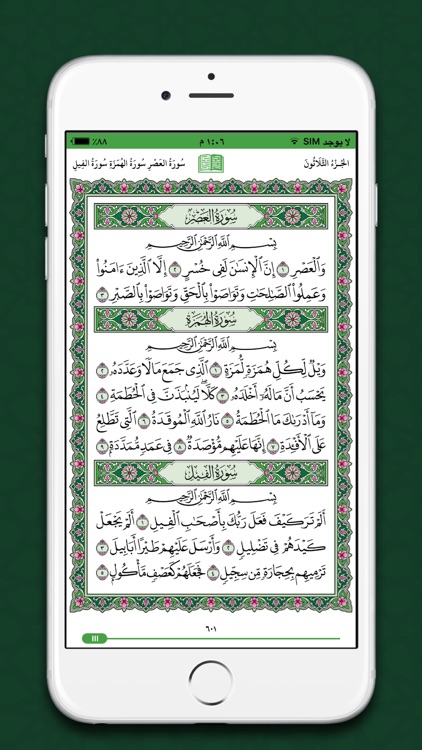 لا يوجد SIM ١:٠٦ م ٪٨٨
الجُزءُ الثَّلَاثُونَ سُورَةُ العَصْرِ سُورَةُ الهُمَزَةِ سُورَةُ الفِيلِ
سُورَةُ العَصْرِ
بِسْمِ اللَّهِ الرَّحْمَٰنِ الرَّحِيمِ
وَالْعَصْرِ ١ إِنَّ الْإِنسَٰنَ لَفِي خُسْرٍ ٢ إِلَّا الَّذِينَ ءَامَنُوا
وَعَمِلُوا الصَّٰلِحَٰتِ وَتَوَاصَوْا بِالْحَقِّ وَتَوَاصَوْا بِالصَّبْرِ ٣
سُورَةُ الهُمَزَةِ
بِسْمِ اللَّهِ الرَّحْمَٰنِ الرَّحِيمِ
وَيْلٌ لِّكُلِّ هُمَزَةٍ لُّمَزَةٍ ١ الَّذِي جَمَعَ مَالًا وَعَدَّدَهُ ٢
يَحْسَبُ أَنَّ مَالَهُ أَخْلَدَهُ ٣ كَلَّا ۖ لَيُنبَذَنَّ فِي الْحُطَمَةِ ٤
وَمَا أَدْرَىٰكَ مَا الْحُطَمَةُ ٥ نَارُ اللَّهِ الْمُوقَدَةُ ٦ الَّتِي تَطَّلِعُ
عَلَى الْأَفْـِٔدَةِ ٧ إِنَّهَا عَلَيْهِم مُّؤْصَدَةٌ ٨ فِي عَمَدٍ مُّمَدَّدَةٍ ٩
سُورَةُ الفِيلِ
بِسْمِ اللَّهِ الرَّحْمَٰنِ الرَّحِيمِ
أَلَمْ تَرَ كَيْفَ فَعَلَ رَبُّكَ بِأَصْحَٰبِ الْفِيلِ ١ أَلَمْ يَجْعَلْ
كَيْدَهُمْ فِي تَضْلِيلٍ ٢ وَأَرْسَلَ عَلَيْهِمْ طَيْرًا أَبَابِيلَ ٣
تَرْمِيهِم بِحِجَارَةٍ مِّن سِجِّيلٍ ٤ فَجَعَلَهُمْ كَعَصْفٍ مَّأْكُولٍ ٥
٦٠١